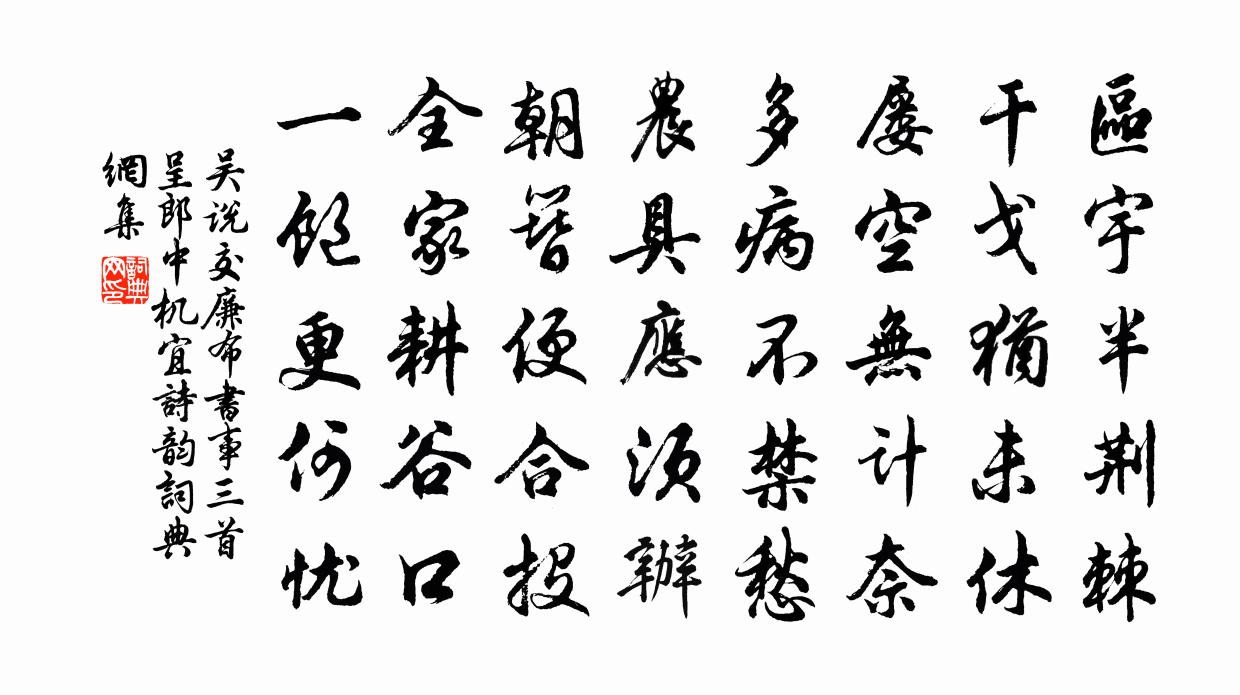 區宇半荆棘
干戈猶未休
屡空無計奈
多病不禁愁
農具應須辦
朝簪便合投
全家耕谷口
一飽更何忧
吴说交廉布書事三首
呈郎中机宜詩韵詞典
網集
詞典
网印